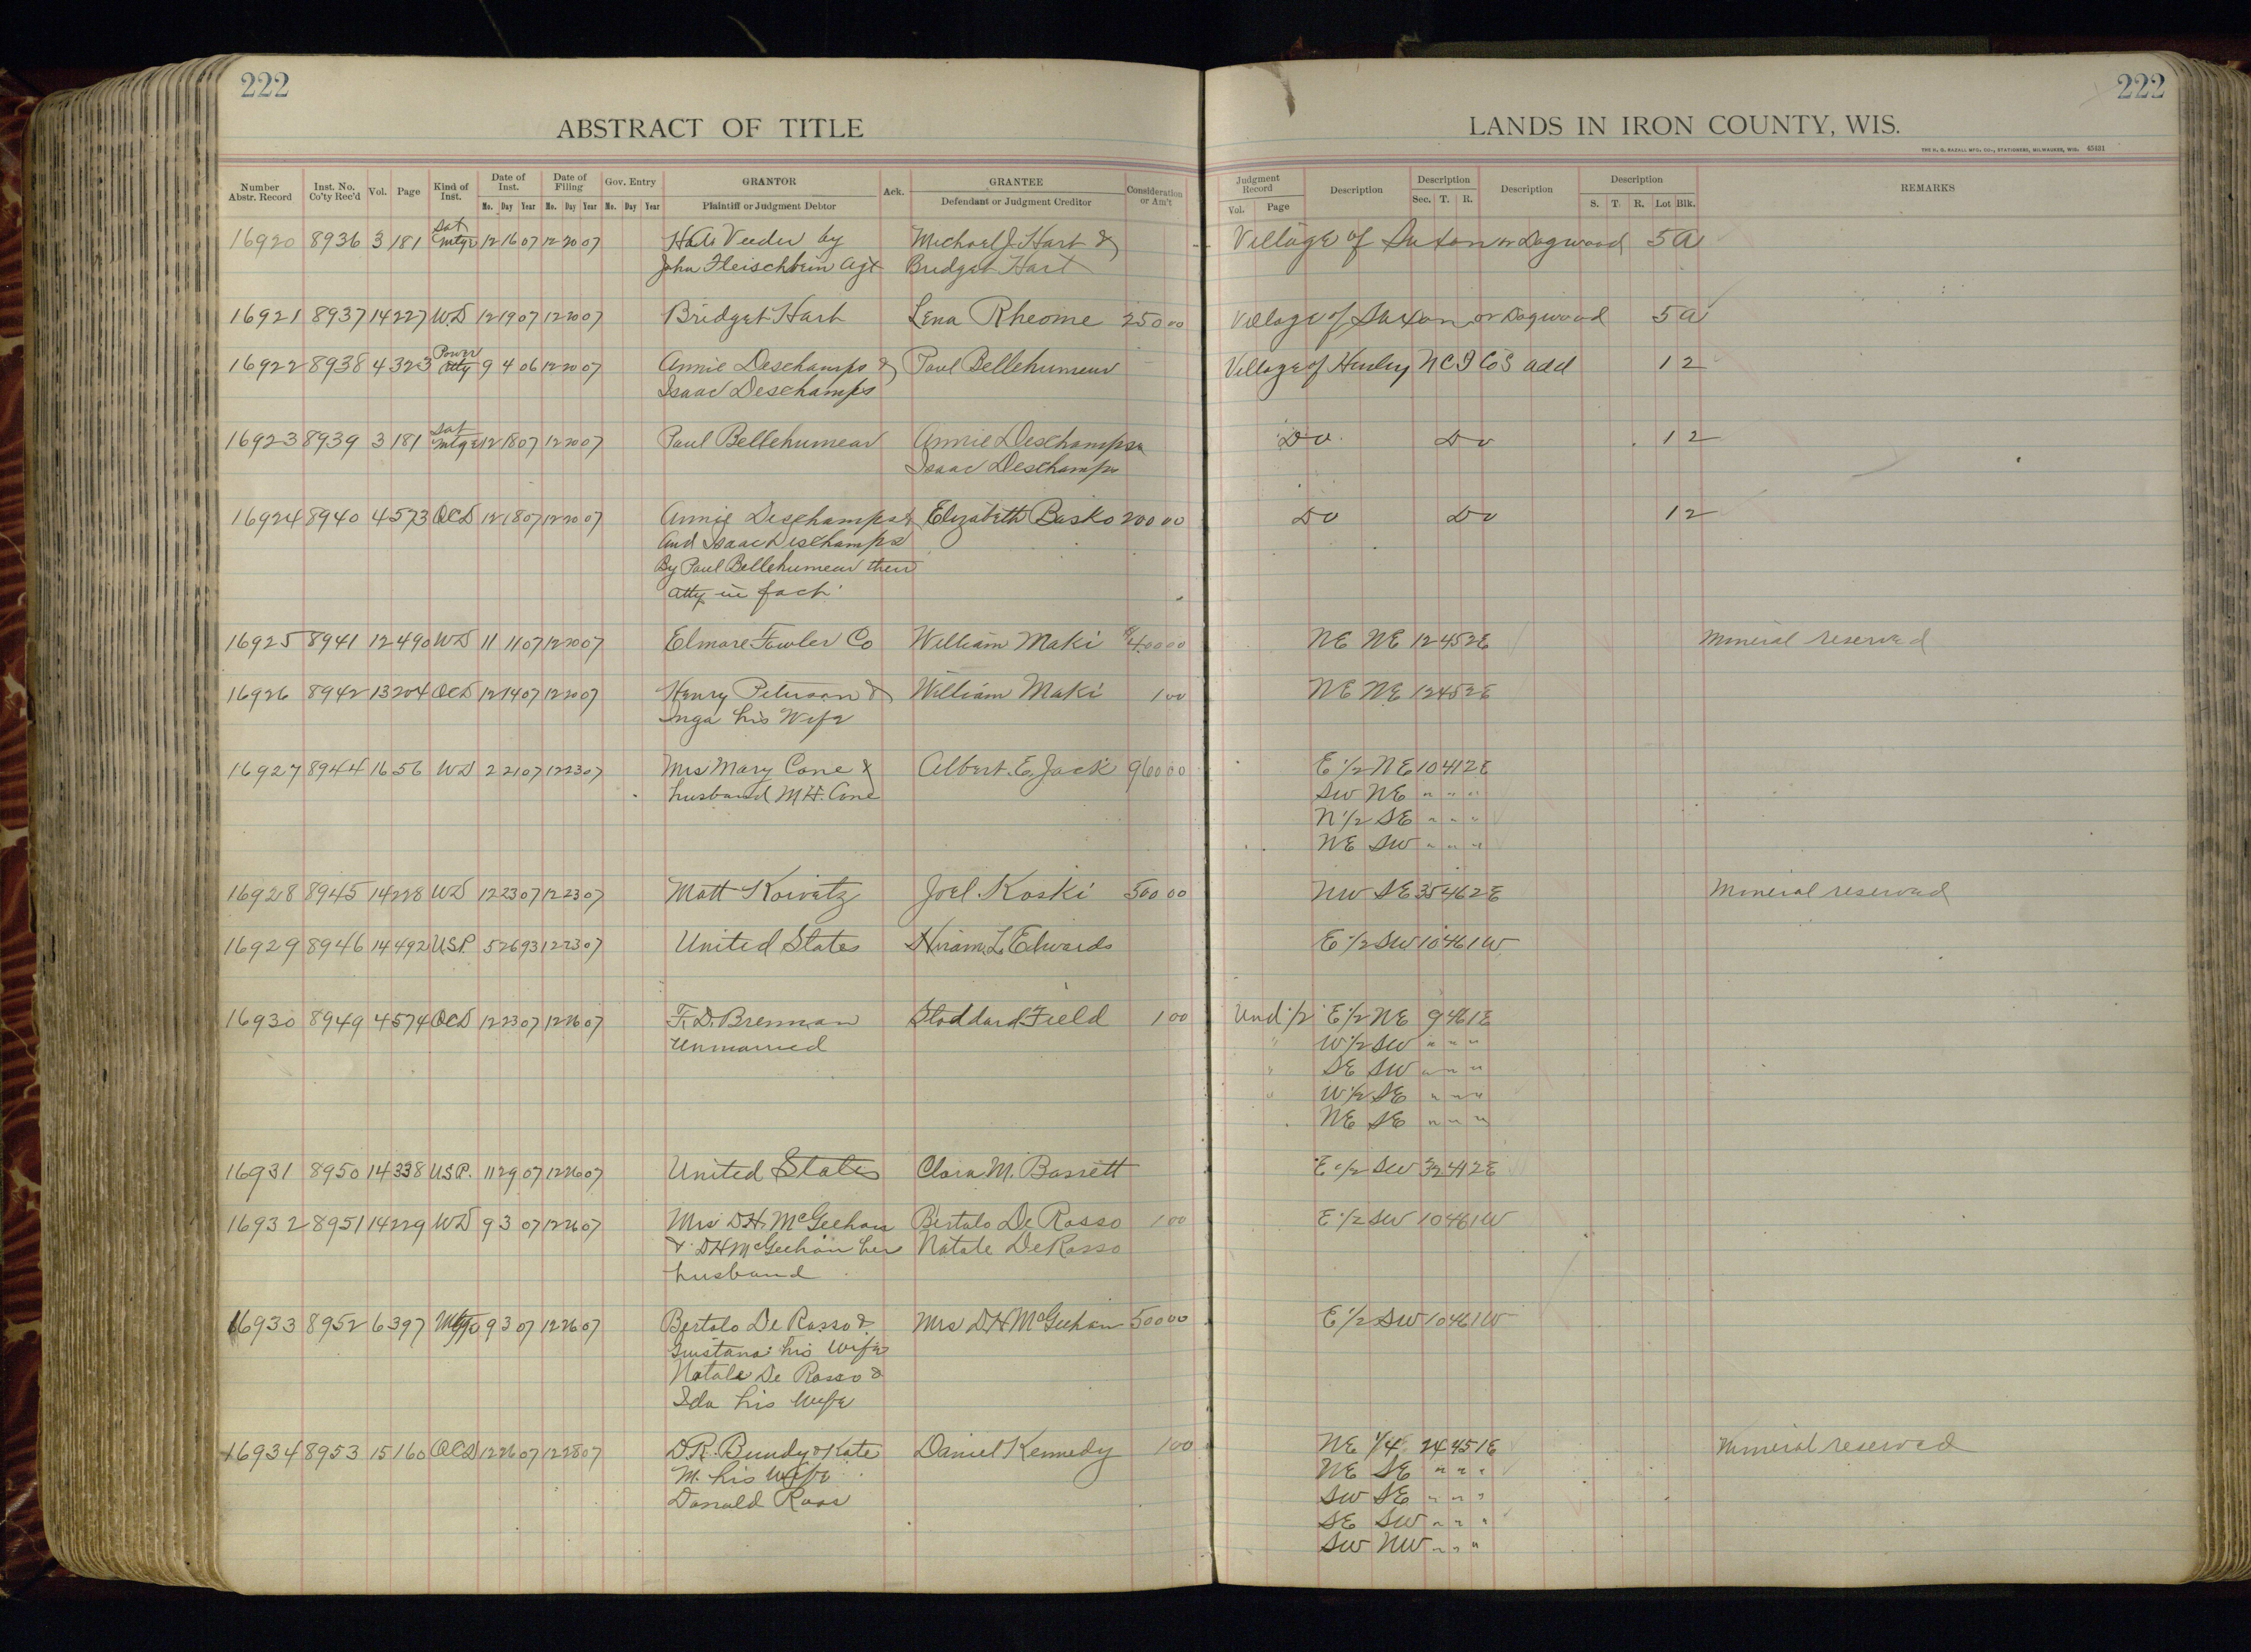 222
222
ABSTRACT OF TITLE
LANDS IN IRON COUNTY, WIS.
THE H. G. RAZALL MFG. CO., STATIONERS, MILWAUKEE, WIS. 45421
Number Abstr. Record Inst. No. Co'ty Rec'd Vol. Page Kind of Inst. Date of Inst. Date of Filing Gov. Entry GRANTOR Ack. GRANTEE Consideration or Am't Judgment Record Description Description Description Description REMARKS
Mo. Day Year Mo. Day Year Mo. Day Year Plaintiff or Judgment Debtor Defendant or Judgment Creditor Vol. Page Sec. T. R. S. T. R. Lot Blk.
16920 8936 3 181 Sat Mtge 12 16 07 12 20 07 Veeder by Michael J. Hart & Village of Saxon or Dogwood 5 A
John Fleischbein Agt Bridget Hart
16921 8937 14 227 WD 12 19 07 12 20 07 Bridget Hart Lena Rheome 250 00 Village of Saxon or Dogwood 5 A
16922 8938 4 323 Power Atty 9 4 06 12 20 07 Annie Deschamps & Paul Bellehumeur Village of Hurley N C I Co's add 1 2
Isaac Deschamps
16923 8939 3 181 Sat Mtge 12 18 07 12 20 07 Paul Bellehumeur Annie Deschamps & Do Do 1 2
Isaac Deschamps
16924 8940 4 573 QCD 12 18 07 12 20 07 Annie Deschamps & Elizabeth Basko 200 00 Do Do 1 2
And Isaac Deschamps
By Paul Bellehumeur their
Atty in fact
16925 8941 12 490 WD 11 1 07 12 20 07 Elmore Fowler Co William Maki 400 00 NE NE 12 45 2E Mineral reserved
16926 8942 13 204 QCD 12 14 07 12 20 07 Henry Peterson & William Maki 1 00 NE NE 12 45 2E
Inga his Wife
16927 8944 16 56 WD 2 21 07 12 23 07 Mrs Mary Cone & Albert. E. Jack 960 00 E 1/2 NE 10 41 2E
husband M H. Cone SW NE " " "
N 1/2 SE " " "
NE SW " " "
16928 8945 14 228 WD 12 23 07 12 23 07 Matt Koivatz Joel Koski 500 00 NW SE 35 46 2E Mineral reserved
16929 8946 14 492 U.S.P. 5 26 93 12 23 07 United States Hiram. L. Edwards E 1/2 SW 10 46 1W
16930 8949 4 574 QCD 12 23 07 12 26 07 F. D. Brennan Stoddard Field 1 00 Und 1/2 E 1/2 NE 9 46 1E
Unmarried " W 1/2 SW " " "
" SE SW " " "
" W 1/2 SE " " "
NE SE " " "
16931 8950 14 338 U.S.P. 11 29 07 12 26 07 United States Clara M. Bassett E 1/2 SW 32 41 2E
16932 8951 14 229 WD 9 3 07 12 26 07 Mrs D H. McGeehan Bertolo De Rosso 1 00 E 1/2 SW 10 46 1W
& D H McGeehan her Natale De Rosso
husband
16933 8952 6 397 Mtge 9 3 07 12 26 07 Bortolo De Rosso & Mrs D H McGeehan 500 00 E 1/2 SW 10 46 1W
his Wife
Natale De Rosso &
Ida his Wife
16934 8953 15 160 QCD 12 26 07 12 28 07 D R. Bundy & Kate Daniel Kennedy 1 00 NE 1/4 24 45 1E Mineral reserved
M. his Wife NE SE " " "
Donald Ross SW SE " " "
SE SW " " "
SW NW " " "